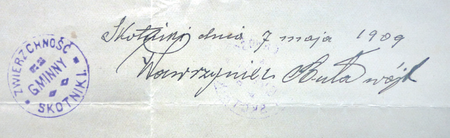 ZWIERZCHNOŚĆ
GMINNY
SKOTNIKI.
Skotniki dnia 7 maja 1909
Wawrzyniec Buła wójt